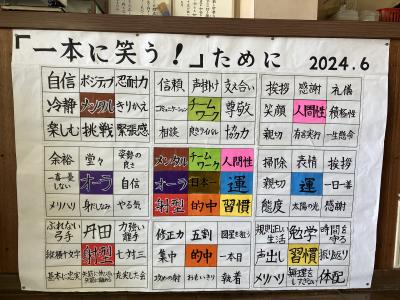 「一本に笑う！」ために 2024.6
自信 ポジティブ 忍耐力 信頼 声掛け 支え合い 挨拶 感謝 礼儀
冷静 メンタル きりかえ コミュニケーション チームワーク 尊敬 笑顔 人間性 積極性
楽しむ 挑戦 緊張感 相談 良きライバル 協力 親切 有言実行 一生懸命
余裕 堂々 姿勢の良さ メンタル チームワーク 人間性 掃除 表情 挨拶
一喜一憂しない オーラ 自信 オーラ 日本一 運 親切 運 一日一善
メリハリ 身だしなみ やる気 射型 的中 習慣 態度 太陽の光 感謝
ぶれない弓手 丹田 力強い離手 修正力 五割 図星を狙う 規則正しい生活 勉学 時間を守る
縦横十文字 射型 七対三 集中 的中 一本目 声出し 習慣 振り返り
基本に忠実 充実した会 攻めの射 おもいきり 執着 メリハリ 無理をしすぎない 体配